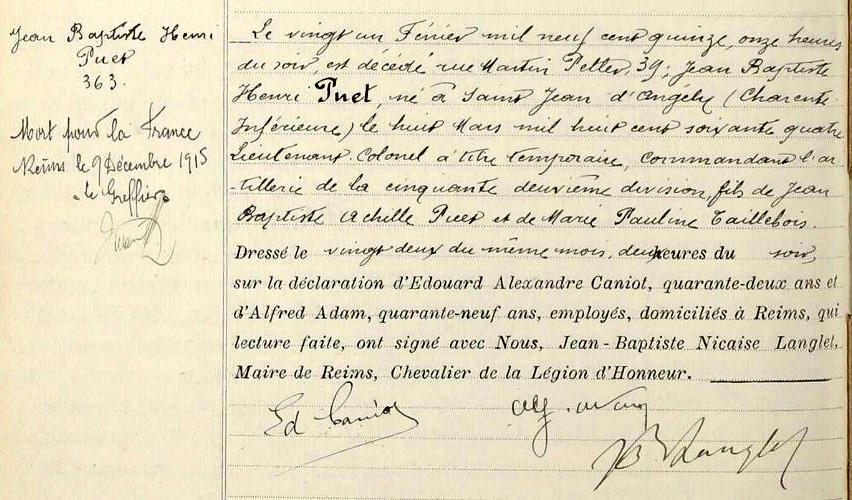 Jean Baptiste Henri
Puet
363.
Mort pour la France
Reims le 9 Décembre 1915
le Greffier
Le vingt un Février mil neuf cent quinze, onze heures
du soir, est décédé rue Martin Peller, 39, Jean Baptiste
Henri Puet, né à Saint Jean d'Angely (Charente
Inférieure) le huit Mars mil huit cent soixante quatre
Lieutenant. Colonel à titre temporaire, commandant l'ar-
-tillerie de la cinquante deuxième division, fils de Jean
Baptiste Achille Puet et de Marie Pauline Taillebois.
Dressé le vingt deux du même mois, deux heures du soir,
sur la déclaration d'Edouard Alexandre Caniot, quarante-deux ans et
d'Alfred Adam, quarante-neuf ans, employés, domiciliés à Reims, qui
lecture faite, ont signé avec Nous, Jean-Baptiste Nicaise Langlet,
Maire de Reims, Chevalier de la Légion d'Honneur.
Ed Caniot
Alf. Adam
JB Langlet